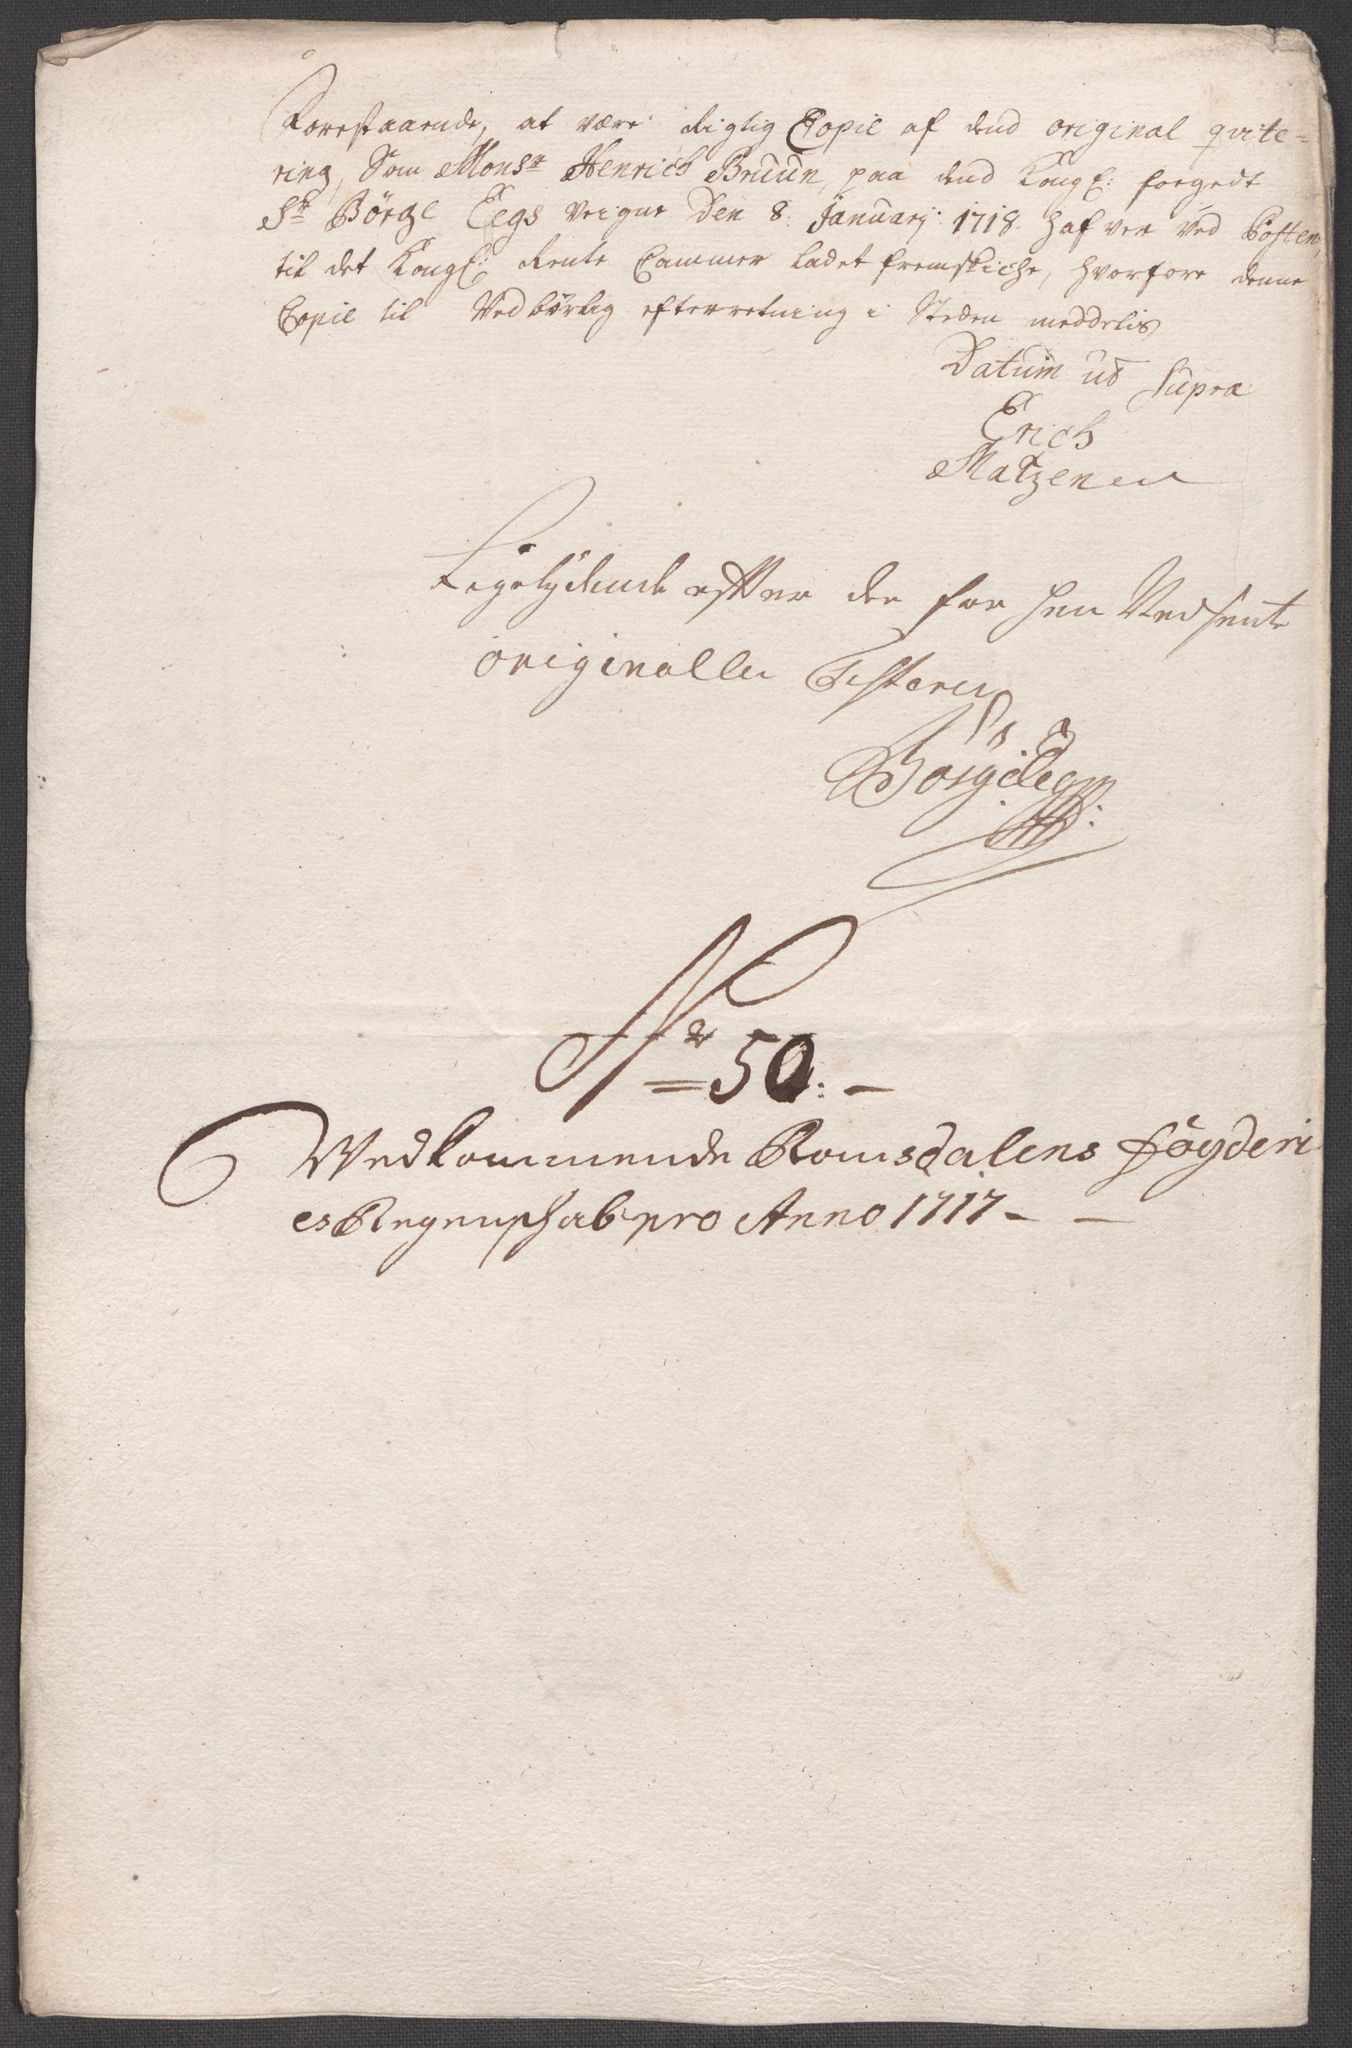 Forestaaende, at være rigtig Copie af dend original qvite-
ring, Som Monsr Henrich Bruun, paa dend Kongl: fogedt
Sr Børge Eegs veigne den 8: Januarij 1718 hafver ved Posten,
til det Kongl: Rente Cammer ladet fremskiche, hvorfore denne
Copie til Vedbørlig efterretning i Steden meddelis
Datum ut supra
Erich
Matzen
Ligelydende efter den for hen Nedsente
originaller Testerer
Børge Eeg
Nr 50:
Vedkommende Romsdalens fogderi
es Regnschab pro Anno 1717